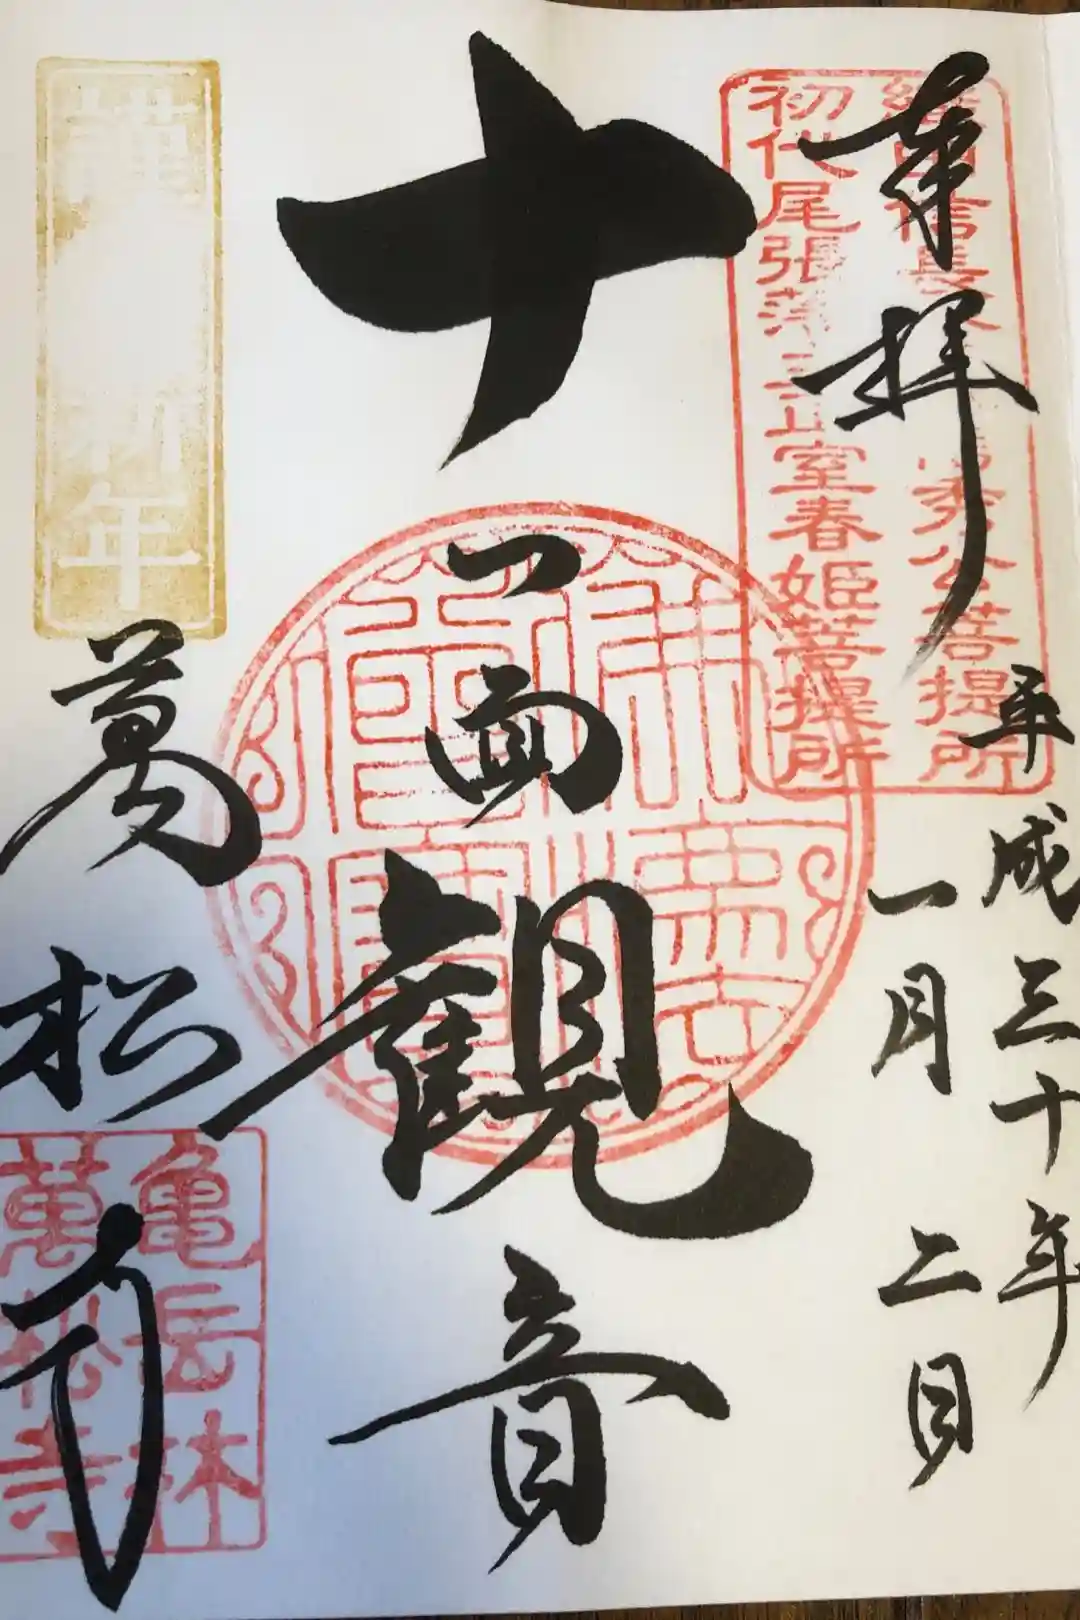 奉拝
平成三十年
一月二日
織田信長公
秀公菩提所
初代尾張藩主正室春姫菩提所
十一面観音
謹賀新年
萬松寺
亀岳林
萬松寺